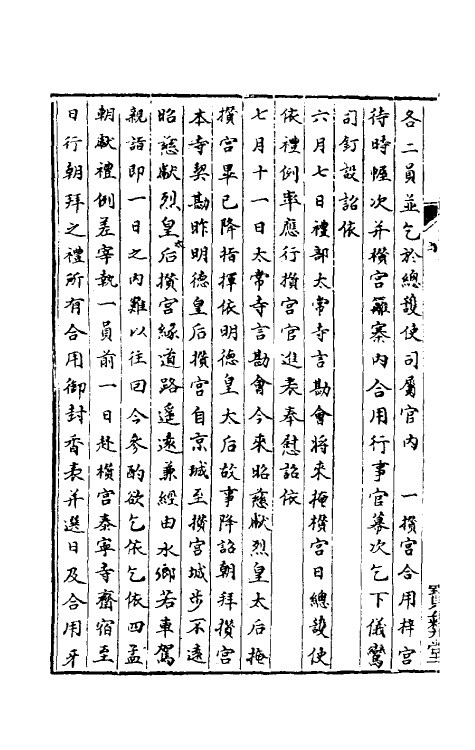 各二員並乞於總護使司屬官內　一攢宮合用梓宮
待時幄次并攢宮籬寨內合用行事官幕次乞下儀鸞
司釘設詔依
六月七日禮部太常寺言勘會將來掩攢宮日總護使
依禮例率應行攢宮官進表奉慰詔依
七月十一日太常寺言勘會今來昭慈獻烈皇太后掩
攢宮畢已降指揮依明德皇太后故事降詔朝拜攢宮
本寺契勘昨明德皇后攢宮自京城至攢宮城步不遠
昭慈獻烈皇太后攢宮緣道路遙遠兼經由水鄉若車駕
親詣即一日之內難以往回今參酌欲乞依乞依四孟
朝獻禮例差宰執一員前一日赴攢宮泰寧寺齋宿至
日行朝拜之禮所有合用御封香表并選日及合用牙